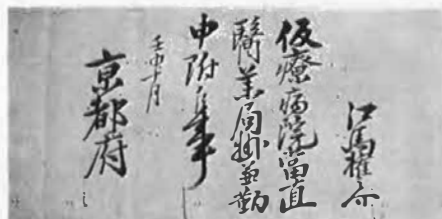 江馬権之介
仮療病院当直
醫業局掛兼勤
申附候事
壬申十月
京都府